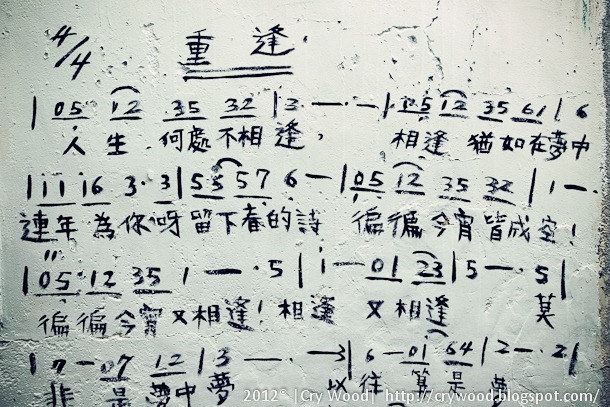 4/4 重逢.
| 05 12 35 32 | 3 — · — | 15 12 35 61 | 6
人生何處不相逢, 相逢猶如在夢中
| 11 16 3 · 3 | 55 57 6 — | 05 12 35 32 | 1 — ·
連年為你呀留下春的詩 徧徧今宵皆成空!
| 05 12 35 1 — · 5 | 1 — 01 23 | 5 — · 5 |
徧徧今宵又相逢! 相逢又相逢 莫
| 7 — 07 12 | 3 — · — 3 | 6 — 01 64 | 2 — · 2 |
非是夢中夢 以往算是夢
2012© |Cry Wood| http://crywood.blogspot.com/